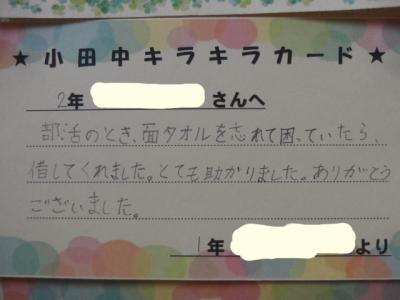 ★小田中キラキラカード★
2年 さんへ
部活のとき、面タオルを忘れて困っていたら、
借してくれました。とても助かりました。ありがとう
ございました。
1年 より